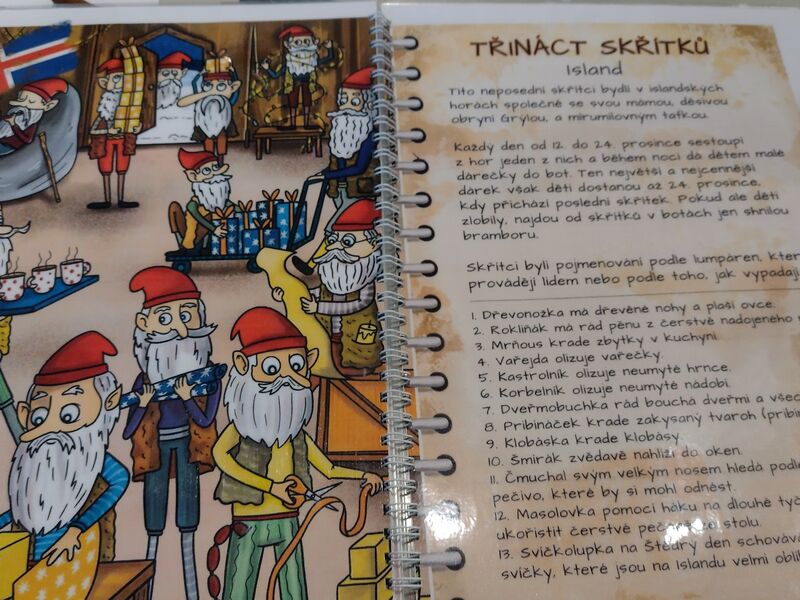 TŘINÁCT SKŘÍTKŮ
Island
Tito neposední skřítci bydlí v islandských
horách společně se svou mámou, děsivou
obryní Grýlou, a mírumilovným taťkou.
Každý den od 12. do 24. prosince sestoupí
z hor jeden z nich a během noci dá dětem malé
dárečky do bot. Ten největší a nejcennější
dárek však děti dostanou až 24. prosince,
kdy přichází poslední skřítek. Pokud ale děti
zlobily, najdou od skřítků v botách jen shnilou
bramboru.
Skřítci byli pojmenováni podle lumpáren, kter
provádějí lidem nebo podle toho, jak vypadají.
1. Dřevonožka má dřevěné nohy a plaší ovce.
2. Rokliňák má rád pěnu z čerstvě nadojeného
3. Mrňous krade zbytky v kuchyni.
4. Vařejda olizuje vařečky.
5. Kastrolník olizuje neumyté hrnce.
6. Korbelník olizuje neumyté nádobí.
7. Dveřmobuchka rád bouchá dveřmi a všec
8. Pribináček krade zakysaný tvaroh (pribin
9. Klobáska krade klobásy.
10. Šmírák zvědavě nahlíží do oken.
11. Čmuchal svým velkým nosem hledá podl
pečivo, které by si mohl odnést.
12. Masolovka pomocí háku na dlouhé tyč
ukořistit čerstvé stolu.
13. Svíčkolupka na Štědrý den schováv
svíčky, které jsou na Islandu velmi oblí